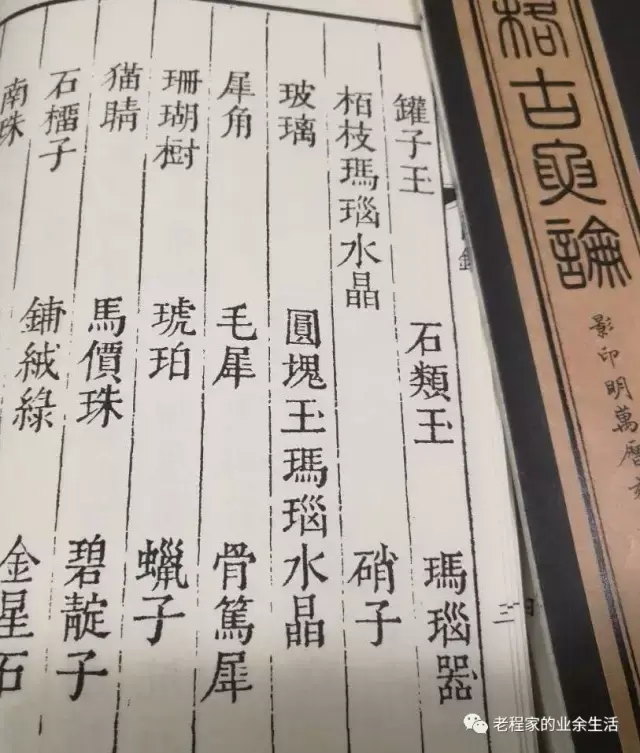 格古要論
影印明萬曆
罐子玉 石類玉 瑪瑙器
栢枝瑪瑙水晶 硝子
玻璃 圓塊玉瑪瑙水晶
犀角 毛犀 骨篤犀
珊瑚樹 琥珀 蠟子
猫睛 馬價珠 碧靛子
石橊子 鋪絨綠 金星石
南珠
老程家的业余生活